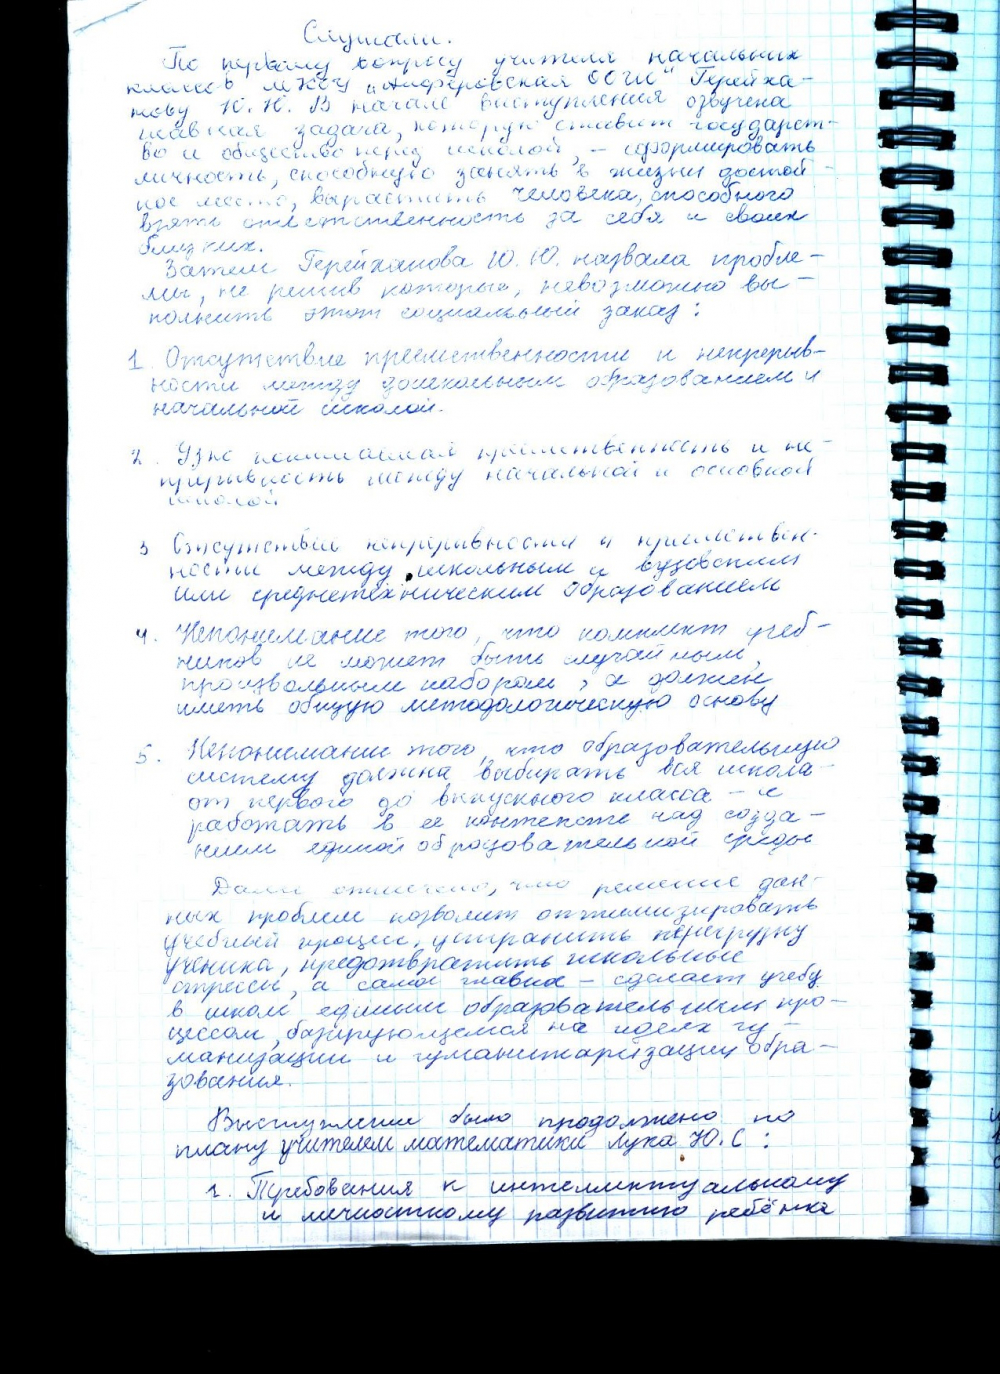 Слушали.
По первому вопросу учителя начальных
классов МКОУ „Алферовская ООШ" Герейха-
нову Ю. Ю. В начале выступления озвучена
главная задача, которую ставит государст-
во и общество перед школой, – сформировать
личность, способную занять в жизни достой-
ное место, вырастить человека, способного
взять ответственность за себя и своих
близких.
Затем Герейханова Ю. Ю. назвала пробле-
мы, не решив которые, невозможно вы-
полнить этот социальный заказ:
1. Отсутствие преемственности и непрерыв-
ности между дошкольным образованием и
начальной школой.
2. Узко понимаемая преемственность и не-
прерывность между начальной и основной
школой
3 Отсутствие непрерывности и преемствен-
ности между школьным и вузовским
или среднетехническим образованием
4. Непонимание того, что комплект учеб-
ников не может быть случайным,
произвольным набором, а должен
иметь общую методологическую основу
5. Непонимание того, что образовательную
систему должна выбирать вся школа –
от первого до выпускного класса – и
работать в её контексте над созда-
нием единой образовательной среды
Далее отмечено, что решение дан-
ных проблем позволит оптимизировать
учебный процесс, устранить перегрузку
ученика, предотвратить школьные
стрессы, а самое главное – сделает учебу
в школе единым образовательным про-
цессом, базирующемся на идеях гу-
манизации и гуманитаризации обра-
зования.
Выступление было продолжено по
плану учителем математики Лука Ю. С:
1. Требования к интеллектуальному
и личностному развитию ребёнка